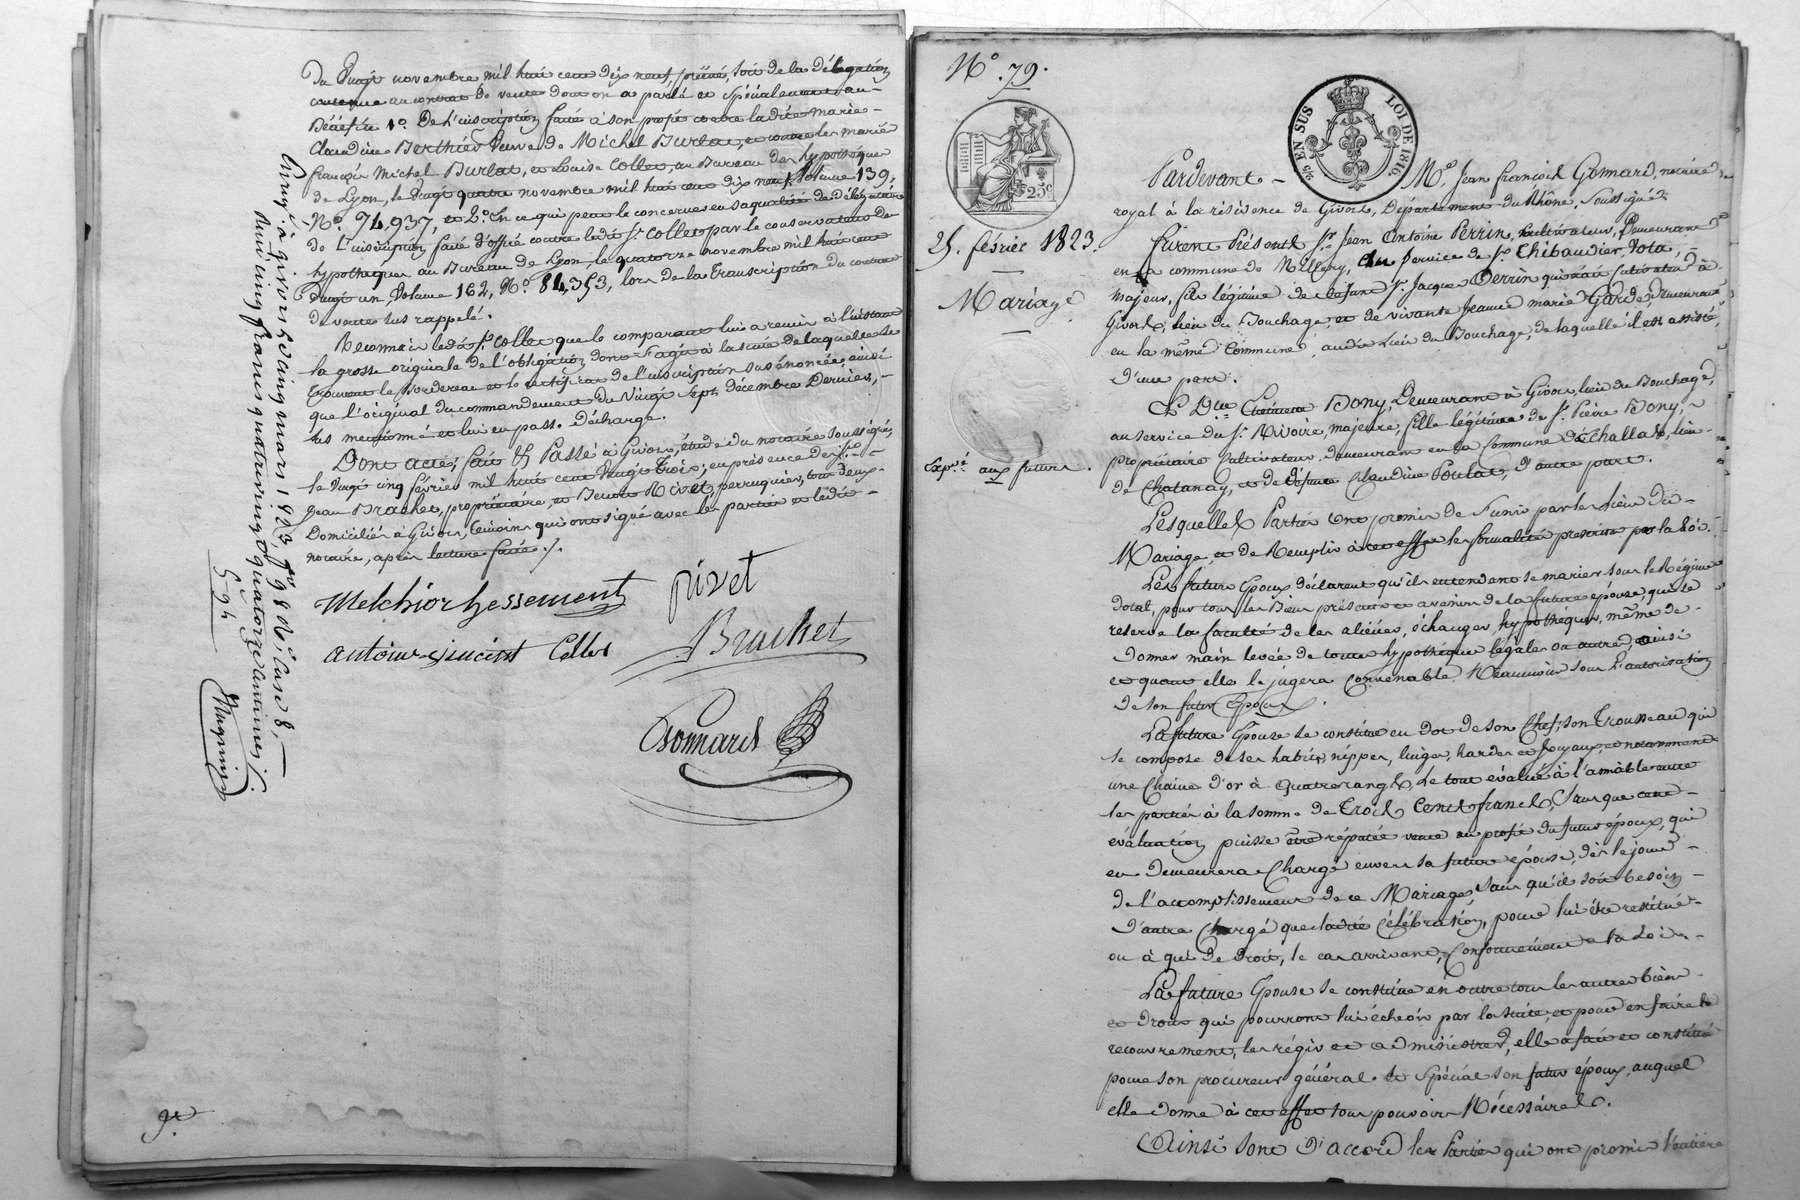 Du Vingt novembre mil huit cent dix neuf, précité, soit de la délégation
contenue au contrat de vente dont on a parlé et spécialement au
Bénéfice 1° De l'inscription faite à son profit contre ladite Marie
Claudine Berthier Veuve de Michel Burlat, et contre les mariés
françois Michel Burlat, et Louise Collet, au Bureau des hypothèques
de Lyon, le vingt quatre novembre mil huit cent dix neuf, Volume 139,
N° 74,937, et 2° En ce qui peut le concerner en sa qualité de délégataire
de L'inscription faite d'office contre ledit Sr. Collet par le conservateur des
hypothèques au Bureau de Lyon le quatorze novembre mil huit cent
Vingt un, Volume 162, N° 84,353, lors de la Transcription du contrat
de vente sus rappelé.
Reconnait ledit Sr. Collet que le comparant lui a remis à l'instant
la grosse originale de l'obligation dont s'agit à la suite de laquelle se
trouvent le Bordereau et le certificat de l'inscription sus énoncée, ainsi
que l'original du commandement du Vingt Sept décembre Dernier,
sus mentionné et lui en passe Décharge.
Dont acte, fait Et Passé à Givors, étude du notaire soussigné,
le Vingt cinq février mil huit cent Vingt Trois, en présence des Srs.
Jean Brachet, propriétaire, et Benoit Rivet, perruquier, tous deux
Domiciliés à Givors, témoins qui ont signé avec les parties et ledit
notaire, après lecture faite ./.
Melchior hessement rivet
antoine vincent Collet Brachet
Gomard
Enreg.é à givors le cinq mars 1823, f° 98 d°, case 8,
Reçu cinq francs quatre vingt quatorze centimes
5 f 94
N° 79.
25c
25c EN SUS LOI DE 1816
25. février 1823.
Mariage
Exp.é aux futurs.
Pardevant Me. Jean françois Gomard, notaire
royal à la résidence de Givors, Département du Rhône, Soussigné
furent Présents Sr. Jean Antoine Perrin, cultivateur, Demeurant
en la commune de Millery, au service de Sr. Thibaudier,
majeur, fils légitime de défunt Sr. Jacques Perrin qui était cultivateur à
Givors, lieu du Bouchage, et de vivante Jeanne marie Garde, demeurant
en la même Commune, audit Lieu du Bouchage, de laquelle il est assisté,
d'une part.
Et Dlle Bony, Demeurant à Givors, lieu du Bouchage,
au service du Sr. Rivoire, majeure, fille légitime de Sr. Pierre Bony,
propriétaire Cultivateur, demeurant en la Commune d'Echallas, lieu
de Chatanay, et de défunte Claudine Poulat, d'autre part.
Lesquelles Parties ont promis de s'unir par les Liens du
Mariage, et de Remplir à cet effet les formalités prescrites par la Loi.
Les futurs Epoux déclarent qu'ils entendent se marier sous le Régime
dotal, pour tous les Biens présents et avenir de la future épouse, qui se
réserve la faculté de les aliéner, échanger, hypothéquer, même de
donner main levée de toute hypothèque légale ou autre, ainsi
et quand elle le jugera Convenable Néanmoins sous l'autorisation
de son futur Epoux.
La future Epouse se constitue en dot de son Chef, son Trousseau qui
se compose de ses habits, nippes, linges, hardes et Joyaux, et notamment
une Chaine d'or à Quatre rangs, Le tout évalué à l'amiable entre
les parties à la somme de Trois Cents francs, Sans que cette
évaluation puisse être réputée vente au profit du futur époux, qui
en demeurera Chargé envers sa future épouse, dès le jour
de l'accomplissement de ce Mariage, sans qu'il soit besoin
d'autre Charge que ladite Célébration, pour lui être restitué
ou à qui de droit, le cas arrivant, Conformément à la Loi.
La future Epouse se constitue en outre tous les autres biens
et droits qui pourront lui échoir par la suite, et pour en faire le
recouvrement, les régir et administrer, elle a fait et constitué
pour son procureur général et Spécial son futur époux, auquel
elle donne à cet effet tous pouvoirs Nécessaires.
Ainsi sont d'accord les Parties qui ont promis l'entière